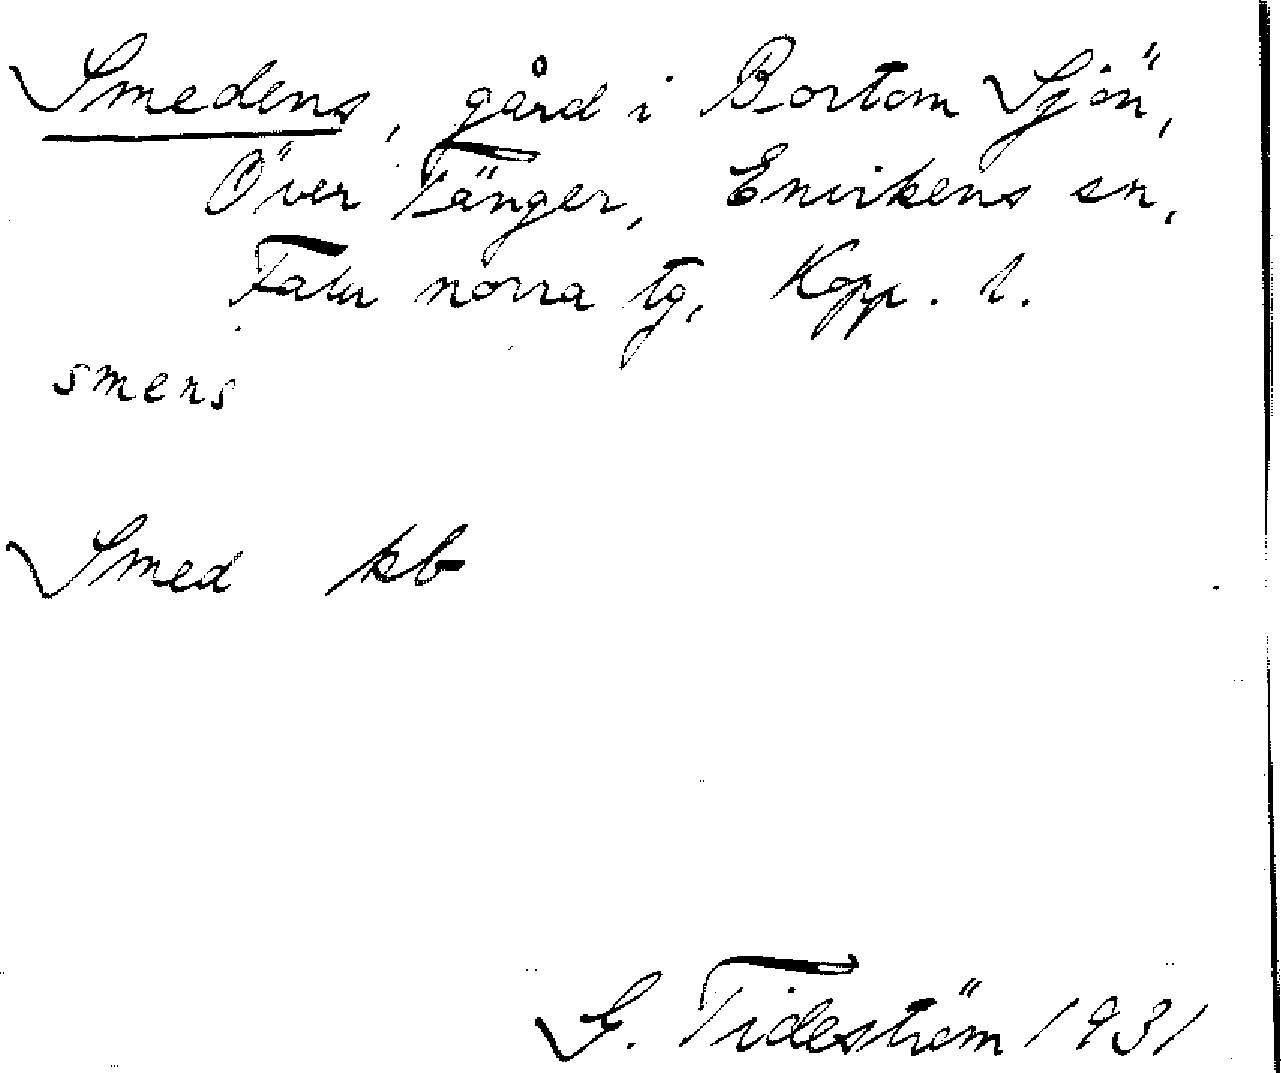 Smedens, gård i Bortom Sjön,
Över Tänger, Envikens sn,
Falu norra tg, Kopp. l.
smens
Smed kb
G. Tideström 1931